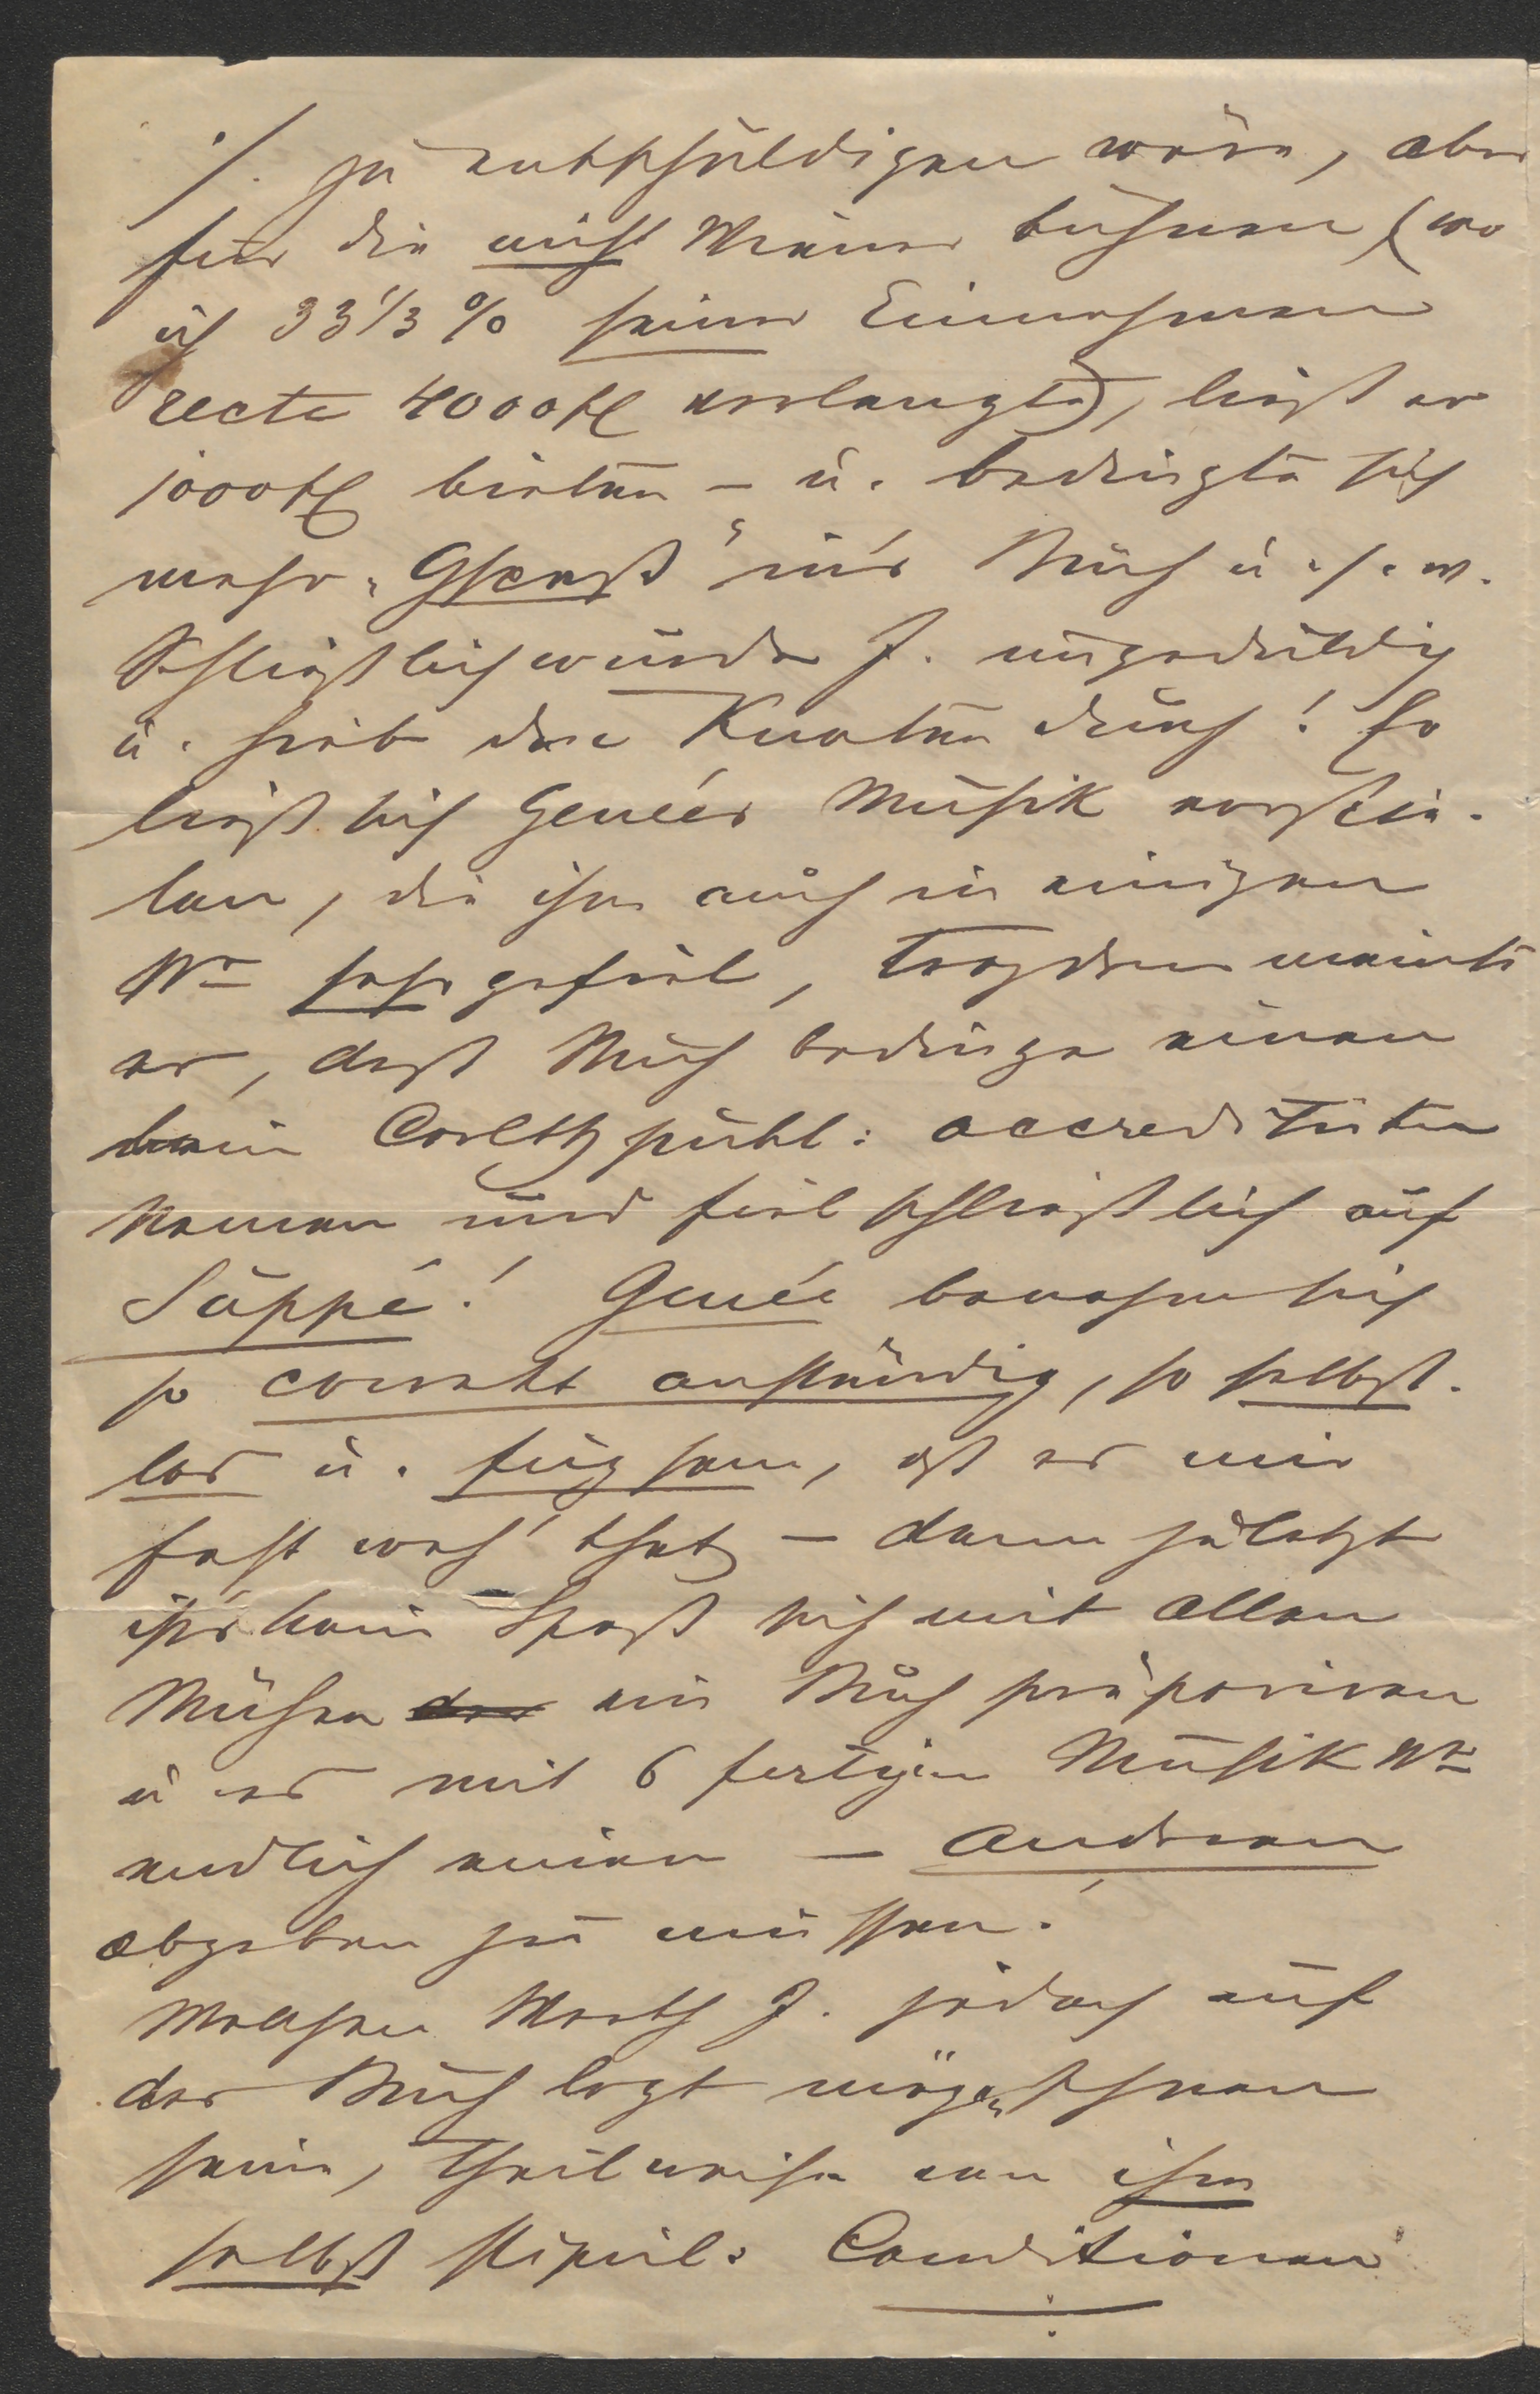 ./. zu entschuldigen wäre, aber
für die nicht Wiener Bühnen (wo
ich 33 1/3 % seiner Einnahmen
recte 4000 fl verlangte), ließ er
1000 fl bieten – u. bedingte sich
mehr „Gspaß" in's Buch u. s. w.
Schließlich wurde J. ungeduldig
u. hieb den Knoten durch! Er
ließ sich Genée's Musik vorspie-
len, die ihm auch in einigen
Nrn sehr gefiel, trotzdem meinte
er, das Buch bedinge einen
beim Carlth. publ: accreditirten
Namen und fiel schließlich auf
Suppé! Genée benahm sich
so correkt anständig, so selbst-
los u. fügsam, daß es mir
fast weh' that, – denn zuletzt
ist's kein Spaß sich mit allen
Mühen ein Buch präpariren
u es mit 6 fertigen Musik Nrn
endlich einem – Anderen
abgeben zu müssen!
Welchen Werth J. jedoch auf
das Buch legt mögen Ihnen
seine, theilweise von ihm
selbst stipul: Conditionen